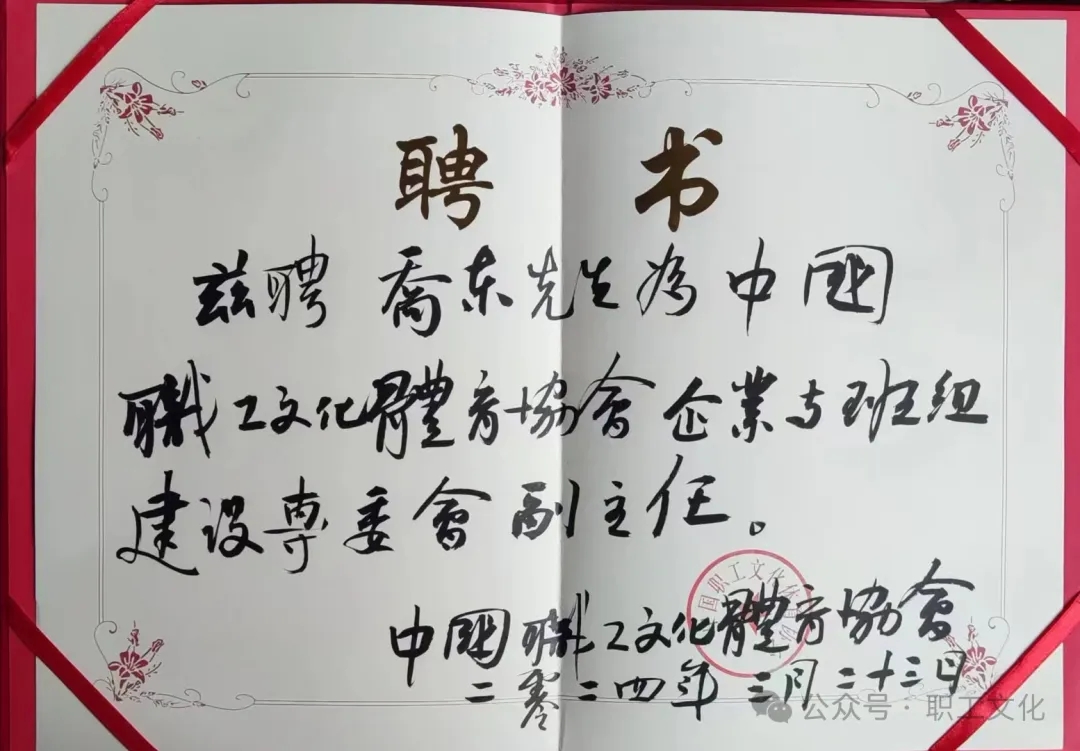 聘 书
兹聘 喬东先生为中國
職工文化體育協會企業与班组
建设専委會副主任。
中國職工文化體育協會
二零二四年三月二十三日
国职工文化体育协
公众号·职工文化